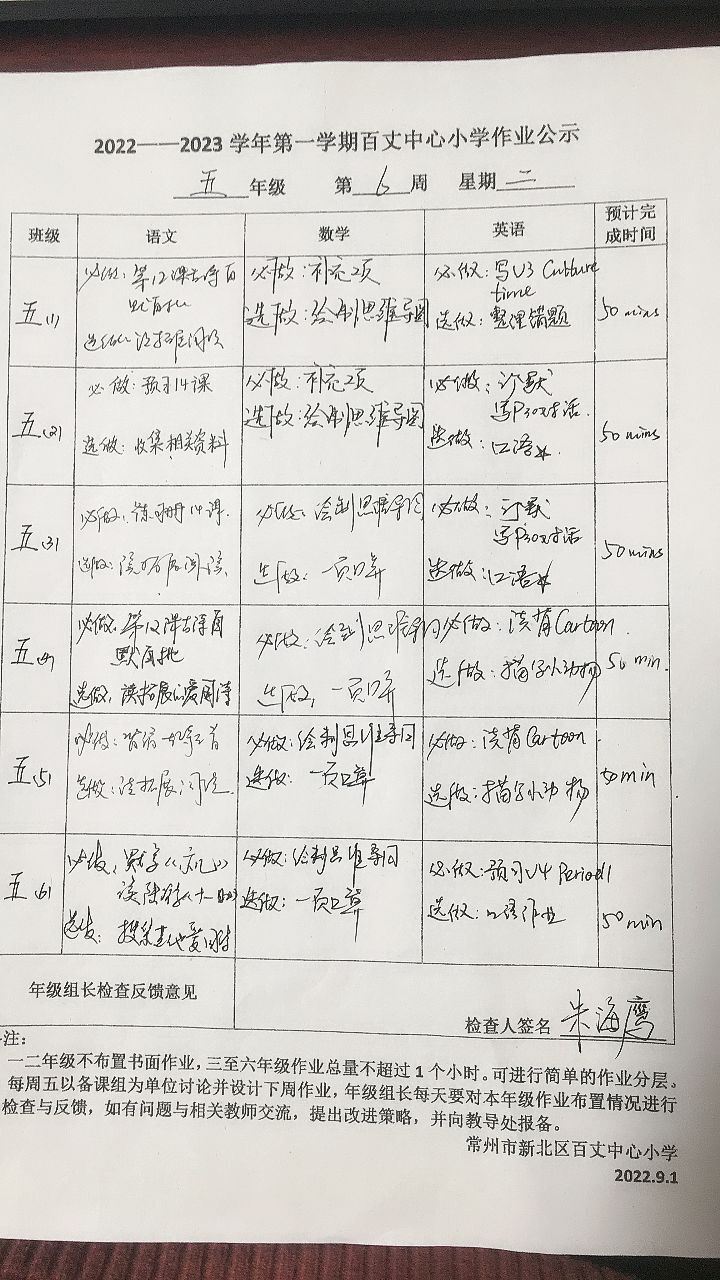 2022——2023 学年第一学期百丈中心小学作业公示
五 年级 第 6 周 星期 二
班级 语文 数学 英语 预计完成时间
五(1)
必做：第12课古诗自默自批
选做：
必做：补充2项
选做：绘制思维导图
必做：写U3 Culture time
选做：整理错题
50 mins
五(2)
必做：预习14课
选做：收集相关资料
必做：补充2项
选做：绘制思维导图
必做：订、默
写P30x对话.
选做：口语
50 mins
五(3)
必做：练习册14课.
选做：
必做：绘制思维导图
选做：一页口算
必做：订、默
写P30x对话
选做：口语
50 mins
五(4)
必做：第12课古诗自默自批
选做：读拓展爱国诗
必做：绘制思维导图
选做：一页口算
必做：读背Cartoon.
选做：描写小动物
50 min.
五(5)
必做：
选做：读拓展阅读
必做：绘制思维导图
选做：一页口算
必做：读背Cartoon.
选做：描写小动物
50 min
五(6)
必做：
选做：搜集其他爱国诗
必做：绘制思维导图
选做：一页口算
必做：预习U4 Period1
选做：口语作业
50 min
年级组长检查反馈意见
检查人签名 朱海鹰
注：
一二年级不布置书面作业，三至六年级作业总量不超过 1 个小时。可进行简单的作业分层。
每周五以备课组为单位讨论并设计下周作业，年级组长每天要对本年级作业布置情况进行
检查与反馈，如有问题与相关教师交流，提出改进策略，并向教导处报备。
常州市新北区百丈中心小学
2022.9.1